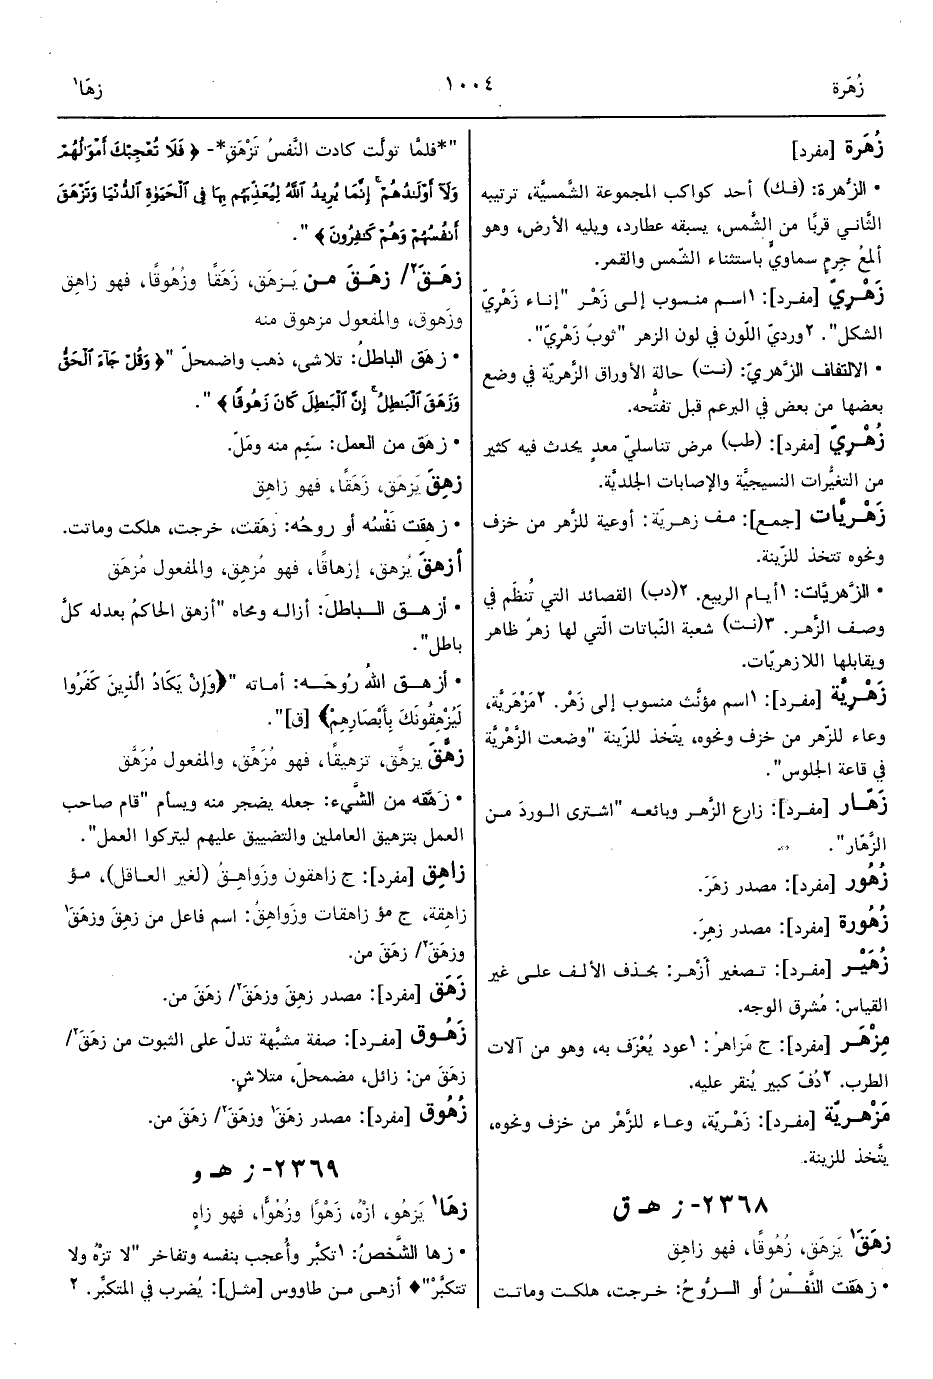 زُهَرة
١٠٠٤
زهَا١
زُهَرة [مفرد]
• الزُّهرة: (فك) أحد كواكب المجموعة الشَّمسيَّة، ترتيبه
الثَّاني قربًا من الشَّمس، يسبقه عطارد، ويليه الأرض، وهو
ألمعُ جرمٍ سماويٍّ باستثناء الشّمس والقمر.
زَهْرِيّ [مفرد]: ١اسم منسوب إلى زَهْر "إناء زَهْرِيّ
الشكل". ٢ورديّ اللّون في لون الزهر "ثوبٌ زَهْرِيّ".
• الالتفاف الزَّهريّ: (نت) حالة الأوراق الزَّهريَّة في وضع
بعضها من بعض في البرعم قبل تفتّحه.
زُهْرِيّ [مفرد]: (طب) مرض تناسليّ معدٍ يحدث فيه كثير
من التغيُّرات النسيجيَّة والإصابات الجلديَّة.
زَهْريَّات [جمع]: مف زهريّة: أوعية للزَّهر من خزف
ونحوه تتخذ للزّينة.
• الزَّهريَّات: ١أيـام الربيع. ٢(دب) القصائد التي تُنظَم في
وصف الزَّهر. ٣(نت) شعبة النّباتات الّتي لها زهرٌ ظاهر
ويقابلها اللازهريّات.
زَهْرِيَّة [مفرد]: ١اسم مؤنَّث منسوب إلى زَهْر. ٢مَزْهَريَّة،
وعاء للزّهر من خزف ونحوه، يتّخذ للزّينة "وضعت الزَّهْريَّة
في قاعة الجلوس".
زَهَّار [مفرد]: زارع الزَّهر وبائعه "اشترى الوردَ من
الزَّهّار".
زُهُور [مفرد]: مصدر زهَرَ.
زُهُورة [مفرد]: مصدر زهِرَ.
زُهَيْر [مفرد]: تصغير أَزْهر: بحذف الألف على غير
القياس: مُشرِق الوجه.
مِزْهَر [مفرد]: ج مَزَاهرُ: ١عود يُعْزَف به، وهو من آلات
الطرب. ٢دُفّ كبير يُنقر عليه.
مَزْهريَّة [مفرد]: زَهْريّة، وعاء للزَّهْر من خزف ونحوه،
يتَّخذ للزينة.
٢٣٦٨- ز هـ ق
زهَقَ١ يَزهَق، زُهُوقًا، فهو زاهِق
• زهَقت النَّفْسُ أو الرُّوحُ: خرجت، هلكت وماتت
"*فلمَّا تولّت كادت النَّفسُ تَزْهَق*- ﴿ فَلَا تُعْجِبْكَ أَمْوَٰلُهُمْ
وَلَآ أَوْلَٰدُهُمْ ۚ إِنَّمَا يُرِيدُ ٱللَّهُ لِيُعَذِّبَهُم بِهَا فِي ٱلْحَيَوٰةِ ٱلدُّنْيَا وَتَزْهَقَ
أَنفُسُهُمْ وَهُمْ كَٰفِرُونَ ﴾ ".
زهَقَ٢/ زهَقَ من يَزهَق، زَهَقًا وزُهُوقًا، فهو زاهِق
وزَهوق، والمفعول مزهوق منه
• زهَق الباطلُ: تلاشى، ذهب واضمحلّ "﴿ وَقُلْ جَآءَ ٱلْحَقُّ
وَزَهَقَ ٱلْبَٰطِلُ ۚ إِنَّ ٱلْبَٰطِلَ كَانَ زَهُوقًا ﴾ ".
• زهَق من العمل: سَئِم منه ومَلّ.
زهِقَ يَزهَق، زَهَقًا، فهو زاهِق
• زهِقت نَفْسُه أو روحُه: زهَقت، خرجت، هلكت وماتت.
أزهقَ يُزهِق، إزهاقًا، فهو مُزهِق، والمفعول مُزهَق
• أزهق الباطلَ: أزاله ومحاه "أزهق الحاكمُ بعدله كلَّ
باطل".
• أزهق اللهُ رُوحَه: أماته "﴿وَإِنْ يَكَادُ الَّذِينَ كَفَرُوا
لَيُزْهِقُونَكَ بِأَبْصَارِهِمْ﴾ [ق]".
زهَّقَ يزهِّق، تزهيقًا، فهو مُزَهِّق، والمفعول مُزَهَّق
• زهَّقه من الشَّيء: جعله يضجر منه ويسأم "قام صاحب
العمل بتزهيق العاملين والتضييق عليهم ليتركوا العمل".
زاهِق [مفرد]: ج زاهقون وزَواهِقُ (لغير العاقل)، مؤ
زاهِقة، ج مؤ زاهقات وزَواهِقُ: اسم فاعل من زهِقَ وزهَقَ١
وزهَقَ٢/ زهَقَ من.
زَهَق [مفرد]: مصدر زهِقَ وزهَقَ٢/ زهَقَ من.
زَهُوق [مفرد]: صفة مشبَّهة تدلّ على الثبوت من زهَقَ٢/
زهَقَ من: زائل، مضمحلّ، متلاشٍ.
زُهُوق [مفرد]: مصدر زهَقَ١ وزهَقَ٢/ زهَقَ من.
٢٣٦٩- ز هـ و
زهَا١ يَزهُو، ازْهُ، زَهْوًا وزُهُوًّا، فهو زاهٍ
• زها الشَّخصُ: ١تكبَّر وأُعجب بنفسه وتفاخر "لا تزْهُ ولا
تتكبَّرْ"♦ أزهى من طاووس [مثل]: يُضرب في المتكبِّر. ٢